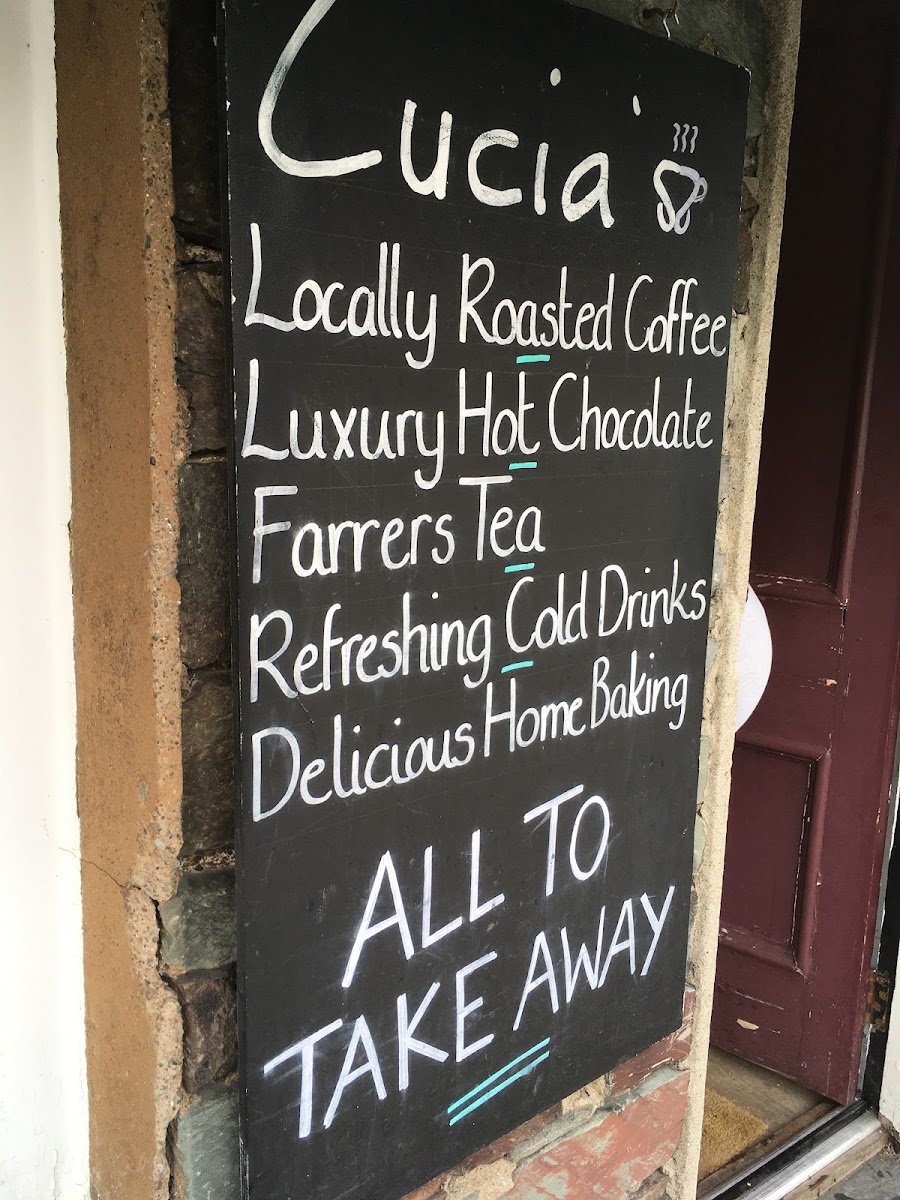 Lucia's
Locally Roasted Coffee
Luxury Hot Chocolate
Farrers Tea
Refreshing Cold Drinks
Delicious Home Baking
ALL TO
TAKE AWAY